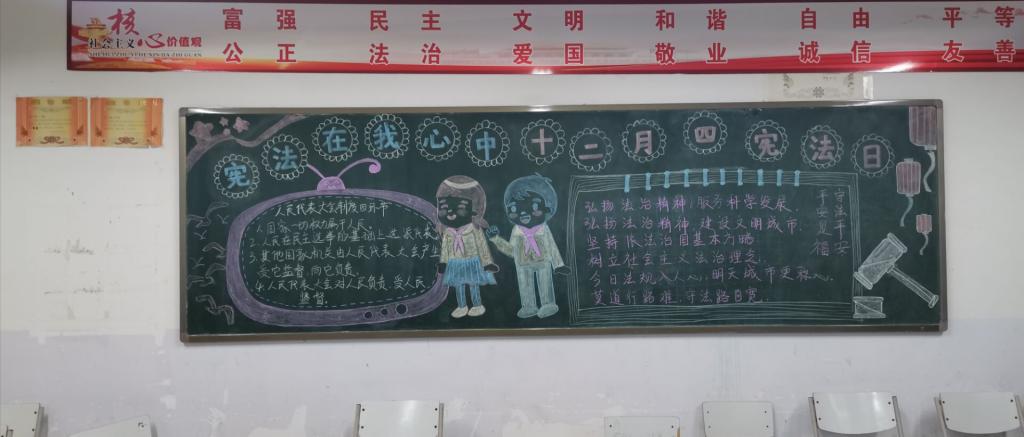 核心价值观
社会主义
SHEHUIZHUYIHEXINJIAZHIGUAN
富强 民主 文明 和谐 自由 平等
公正 法治 爱国 敬业 诚信 友善
宪法在我心中十二月四宪法日
人民代表大会制度四环节
1.国家一切权力属于人民.
2.人民在民主选举的基础上选民代表
3.其他国家机关由人民代表大会产生
受它监督 向它负责.
4.人民代表大会对人民负责 受人民
监督.
弘扬法治精神,服务科学发展.
弘扬法治精神,建设文明城市.
坚持依法治国基本方略.
树立社会主义法治理念.
今日法规入人心,明天城市更
道行路难,守法路自宽.
守法平安
平安是福